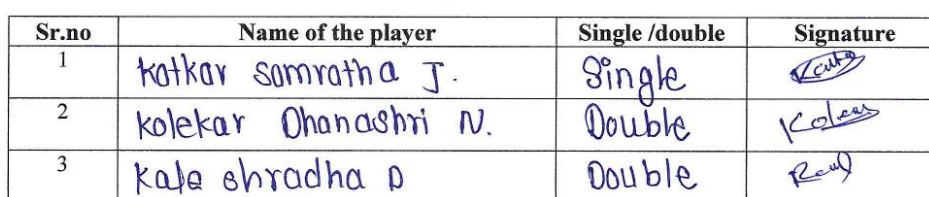 Sr.no Name of the player Single /double Signature
1 Katkar Samratha J. Single
2 Kolekar Dhanashri N. Double
3 Kale shradha D Double